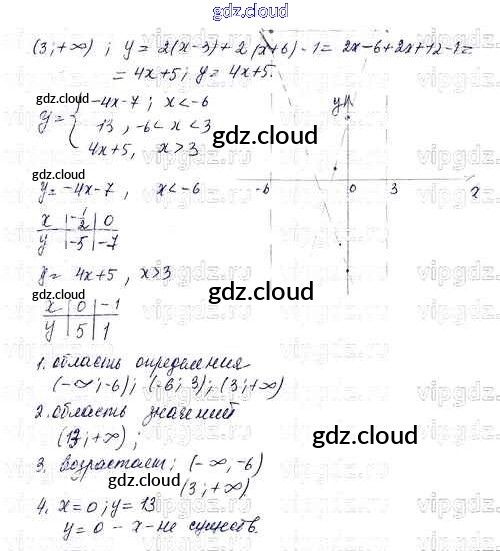 gdz.cloud
(3;+∞) ; y = 2(x-3)+2(x+6)-1 = 2x-6+2x+12-1 =
= 4x+5; y = 4x+5.
gdz.cloud
y = { -4x-7 ; x<-6
13 , -6<x<3
4x+5, x>3
gdz.cloud
y
-6 0 3
y = -4x-7 , x<-6
x | -1/2 | 0
y | -5 | -7
y = 4x+5 , x>3
gdz.cloud
gdz.cloud
x | 0 | -1
y | 5 | 1
1. область определения
(-∞;-6); (-6; 3); (3;+∞)
gdz.cloud
2. область значений
(13;+∞) ;
gdz.cloud
3. возрастает; (-∞,-6)
(3;+∞)
gdz.cloud
4. x=0; y=13
y=0 - x-не существ.
gdz.cloud